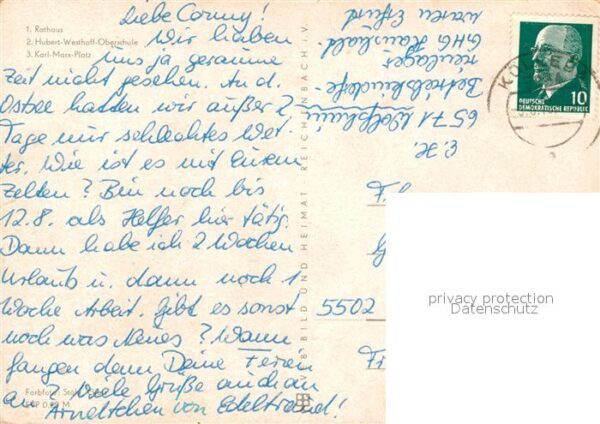 Liebe Conny!
1. Rathaus
2. Hubert-Westhoff-Oberschule
3. Karl-Marx-Platz
Wir haben
uns ja geraume
Zeit nicht gesehen. An d.
Ostsee hatten wir außer 2
Tage nur schlechtes Wet-
ter. Wie ist es mit Eurem
Zelten? Bin noch bis
12.8. als Helfer hier tätig.
Dann habe ich 2 Wochen
Urlaub u. dann noch 1
Woche Arbeit. Gibt es sonst
noch was Neues? Wann
fangen denn Deine Ferien
an? Viele Grüße auch an
von Edeltraud!
VEB BILD UND HEIMAT REICHENBACH I. V.
6571
Betriebskinderfe-
rienlager
GHG Haushalt-
waren Erfurt
DEUTSCHE
DEMOKRATISCHE REPUBLIK
10
5502
privacy protection
Datenschutz